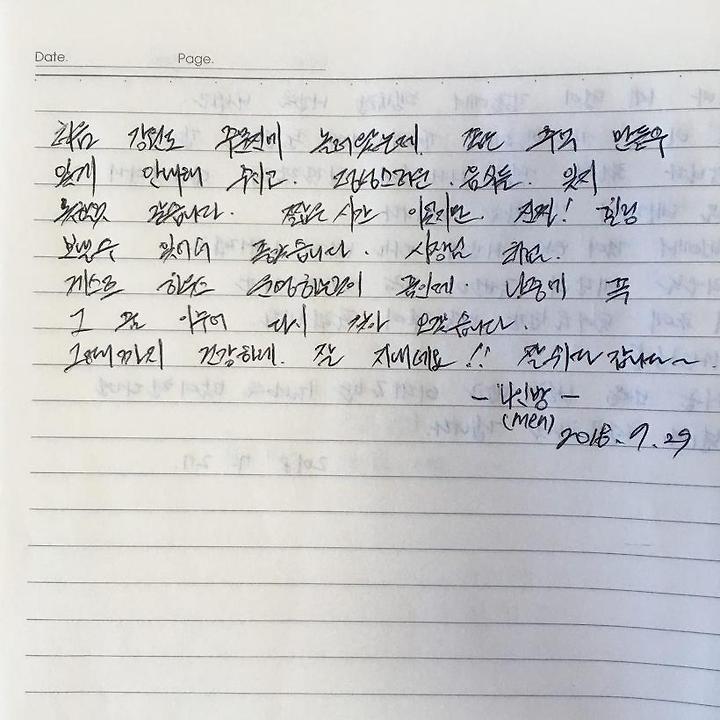 Date. Page.
처음 강원도 놀러왔는데. 좋은 추억 만들수
있게 안내해 주시고. 정성스러운 음식들. 잊지
못할것 같습니다. 짧은 시간 이었지만. 진짜! 힐링
할수 있어서 좋았습니다. 사장님
게스트 하우스 꿈이신데. 나중에 꼭
그 꿈 이루어 다시 찾아 오겠습니다.
그때까지 건강하게. 잘 지내세요!! 잘 쉬다 갑니다~.
- 4인방 -
(men)
2018. 9. 29